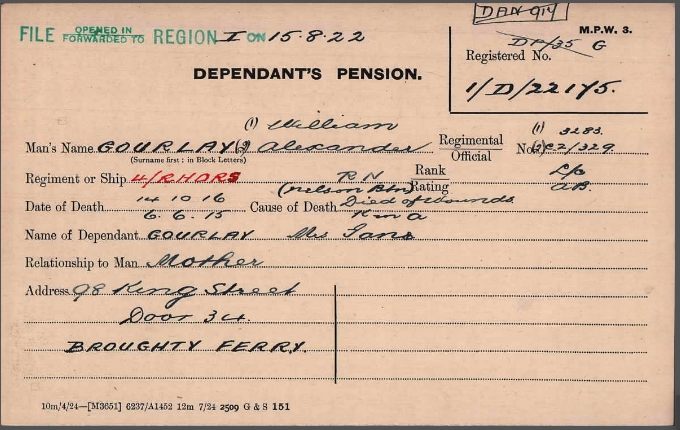 DAN 914
FILE OPENED IN FORWARDED TO REGION I ON 15.8.22
M.P.W. 3.
DP/35 G
Registered No.
1/D/22175.
DEPENDANT'S PENSION.
(1) William
Man's Name GOURLAY (2) Alexander Regimental Official No. (1) 3283. (2) C2/329
(Surname first; in Block Letters)
Regiment or Ship 4/R HDRS RN Rank L/c
(Nelson Btn) Rating AB.
Date of Death 14 10 16 Cause of Death Died of Wounds
6.6.15 K in A
Name of Dependant GOURLAY Mrs Jane
Relationship to Man Mother
Address 98 King Street
Door 34.
BROUGHTY FERRY.
10m/4/24—[M3651] 6237/A1452 12m 7/24 2509 G & S 151